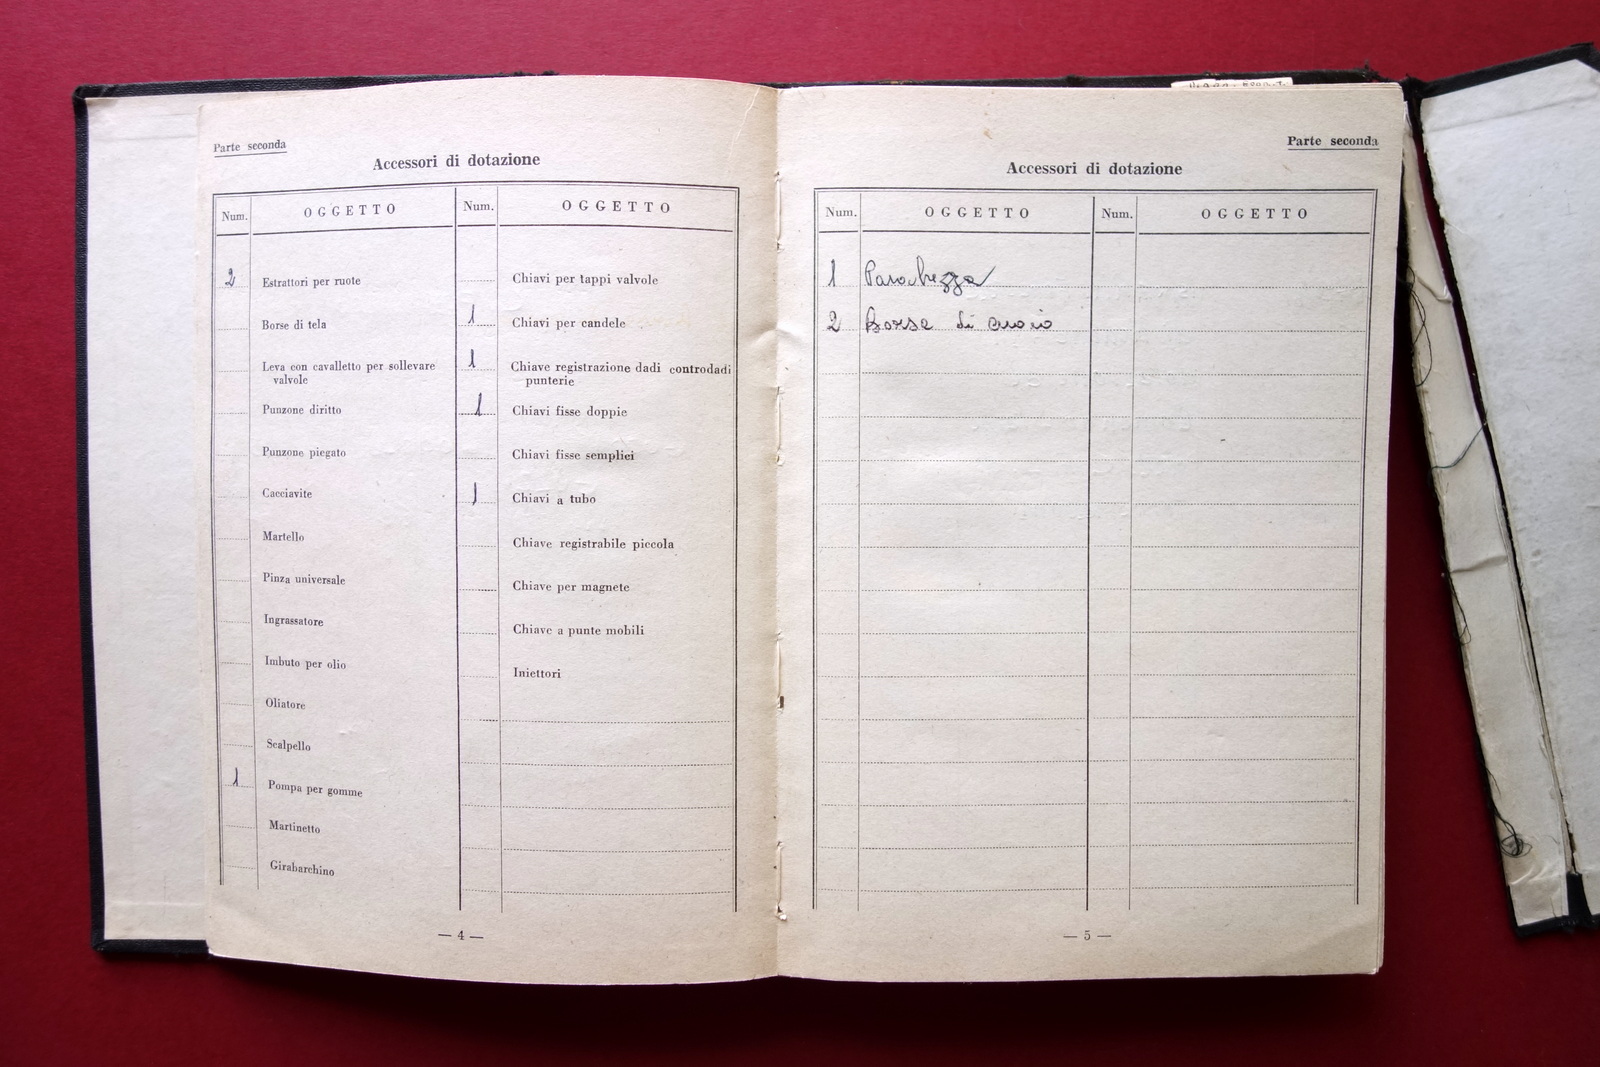 Parte seconda
Accessori di dotazione
Num. OGGETTO Num. OGGETTO
2 Estrattori per ruote
Borse di tela
Leva con cavalletto per sollevare
valvole
Punzone diritto
Punzone piegato
Cacciavite
Martello
Pinza universale
Ingrassatore
Imbuto per olio
Oliatore
Scalpello
1 Pompa per gomme
Martinetto
Girabarchino
Chiavi per tappi valvole
1 Chiavi per candele
1 Chiave registrazione dadi controdadi
punterie
1 Chiavi fisse doppie
Chiavi fisse semplici
1 Chiavi a tubo
Chiave registrabile piccola
Chiave per magnete
Chiave a punte mobili
Iniettori
— 4 —
Parte seconda
Accessori di dotazione
Num. OGGETTO Num. OGGETTO
1 Parabrezza
2 Borse di cuoio
— 5 —